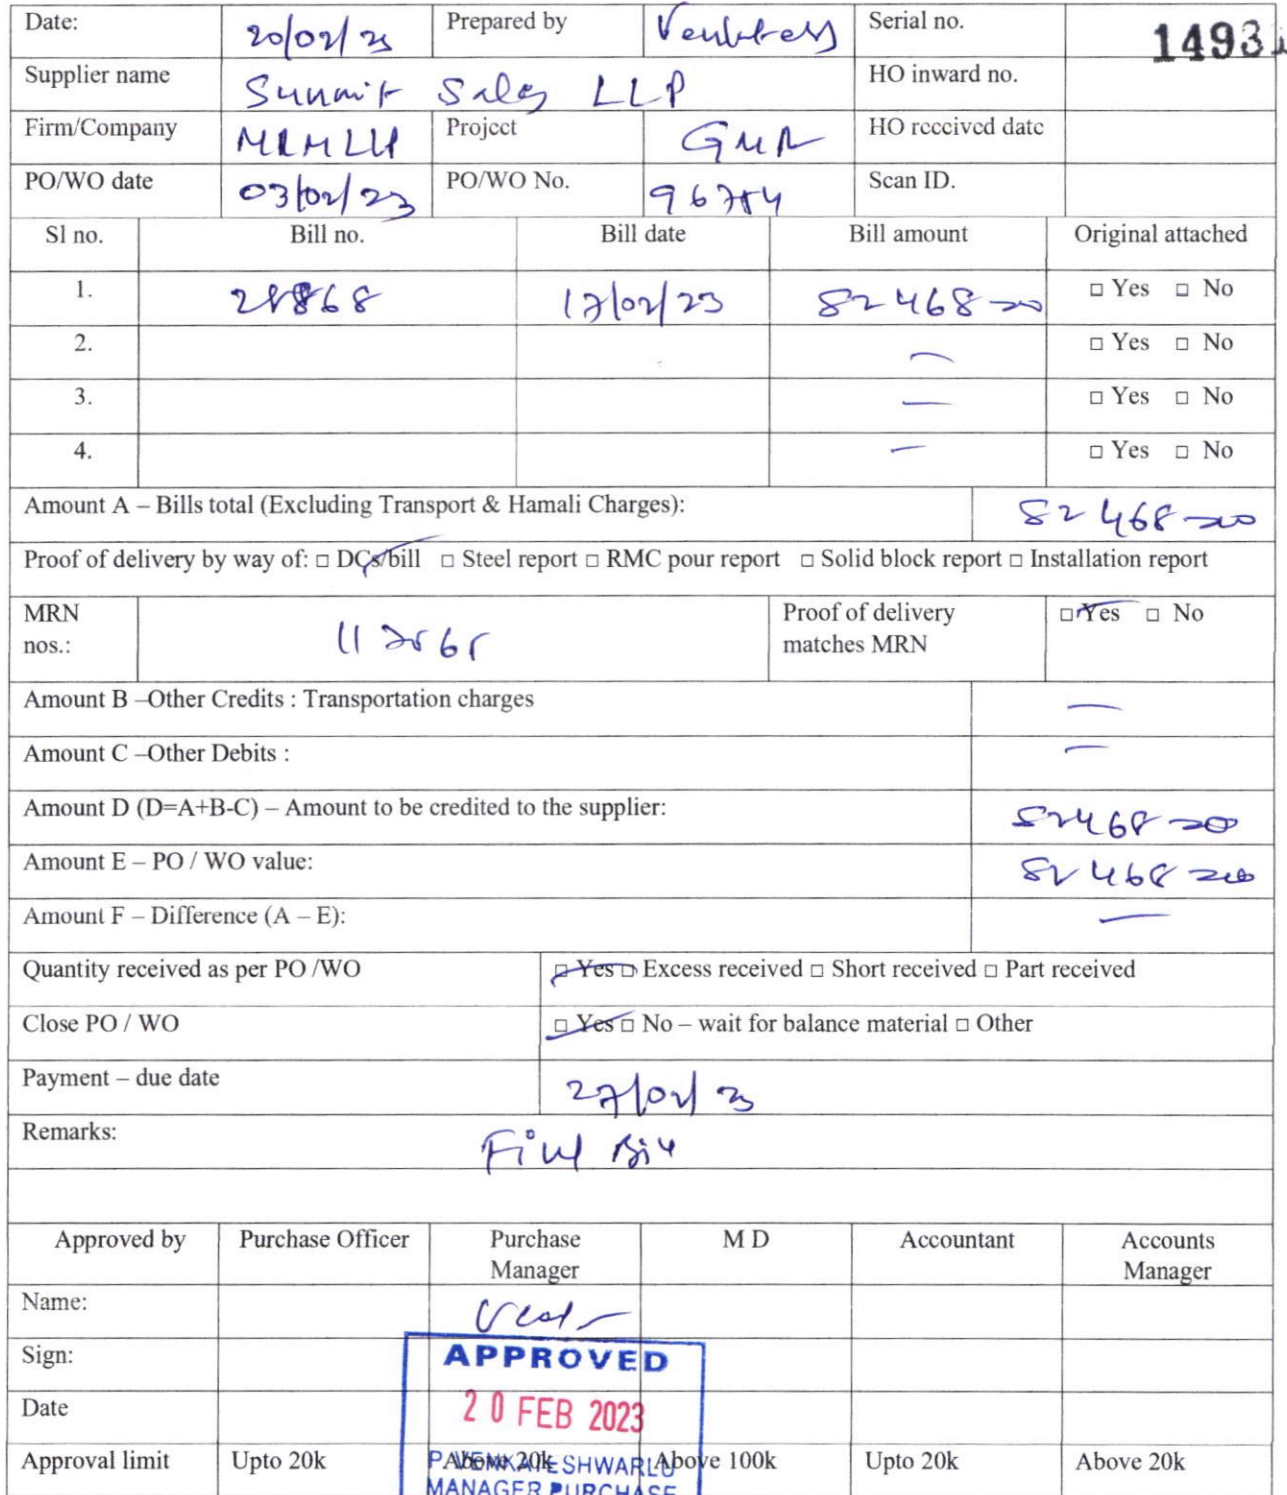 Date: 20/02/23 Prepared by Venkatesh Serial no. 1493
Supplier name Summit Sales LLP HO inward no.
Firm/Company MRMLLP Project GMR HO received date
PO/WO date 03/02/23 PO/WO No. Scan ID.
Sl no. Bill no. Bill date Bill amount Original attached
1. 28868 17/02/23 82468=00 □ Yes □ No
2. — □ Yes □ No
3. — □ Yes □ No
4. — □ Yes □ No
Amount A – Bills total (Excluding Transport & Hamali Charges): 82468=00
Proof of delivery by way of: □ DCs/bill □ Steel report □ RMC pour report □ Solid block report □ Installation report
MRN nos.: Proof of delivery □ Yes □ No
matches MRN
Amount B –Other Credits : Transportation charges —
Amount C –Other Debits : —
Amount D (D=A+B-C) – Amount to be credited to the supplier: 82468=00
Amount E – PO / WO value: 82468=00
Amount F – Difference (A – E): —
Quantity received as per PO /WO □ Yes □ Excess received □ Short received □ Part received
Close PO / WO □ Yes □ No – wait for balance material □ Other
Payment – due date 27/02/23
Remarks: Final Bill
Approved by Purchase Officer Purchase Manager M D Accountant Accounts Manager
Name:
Sign: APPROVED
Date 20 FEB 2023
Approval limit Upto 20k Above 20k Above 100k Upto 20k Above 20k
P. VENKATESHWARLU
MANAGER PURCHASE